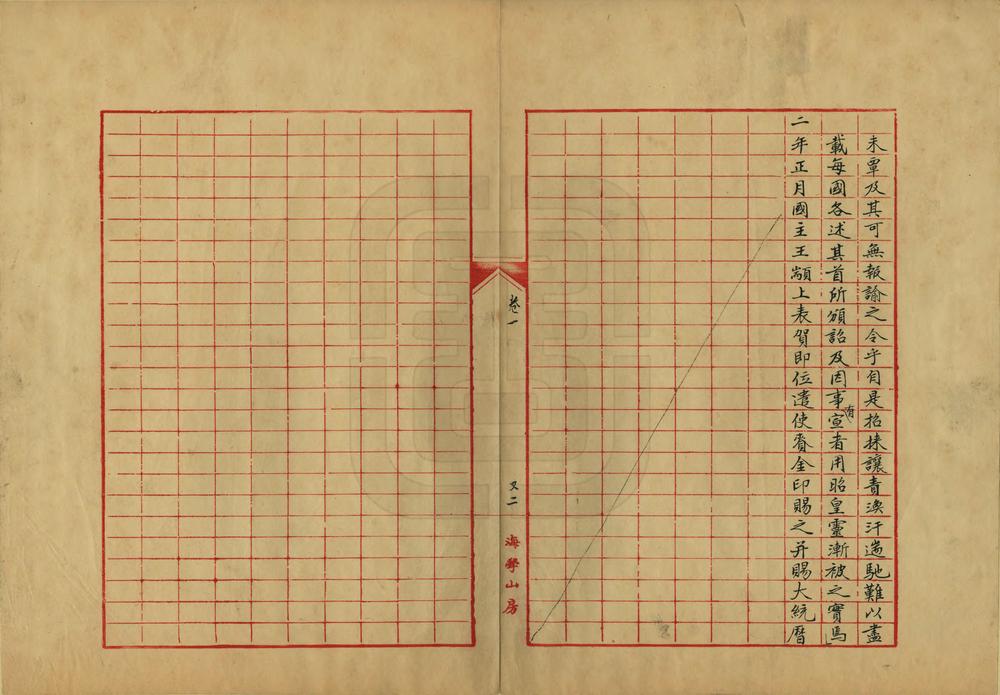 未覃及其可無報諭之令乎自是招捸讓責渙汗遄馳難以盡
載每國各述其首所頒詔及因事宣有者用昭皇靈漸被之實焉
二年正月國主王顓上表賀即位遣使賚金印賜之并賜大統曆
卷一
又二
海學山房